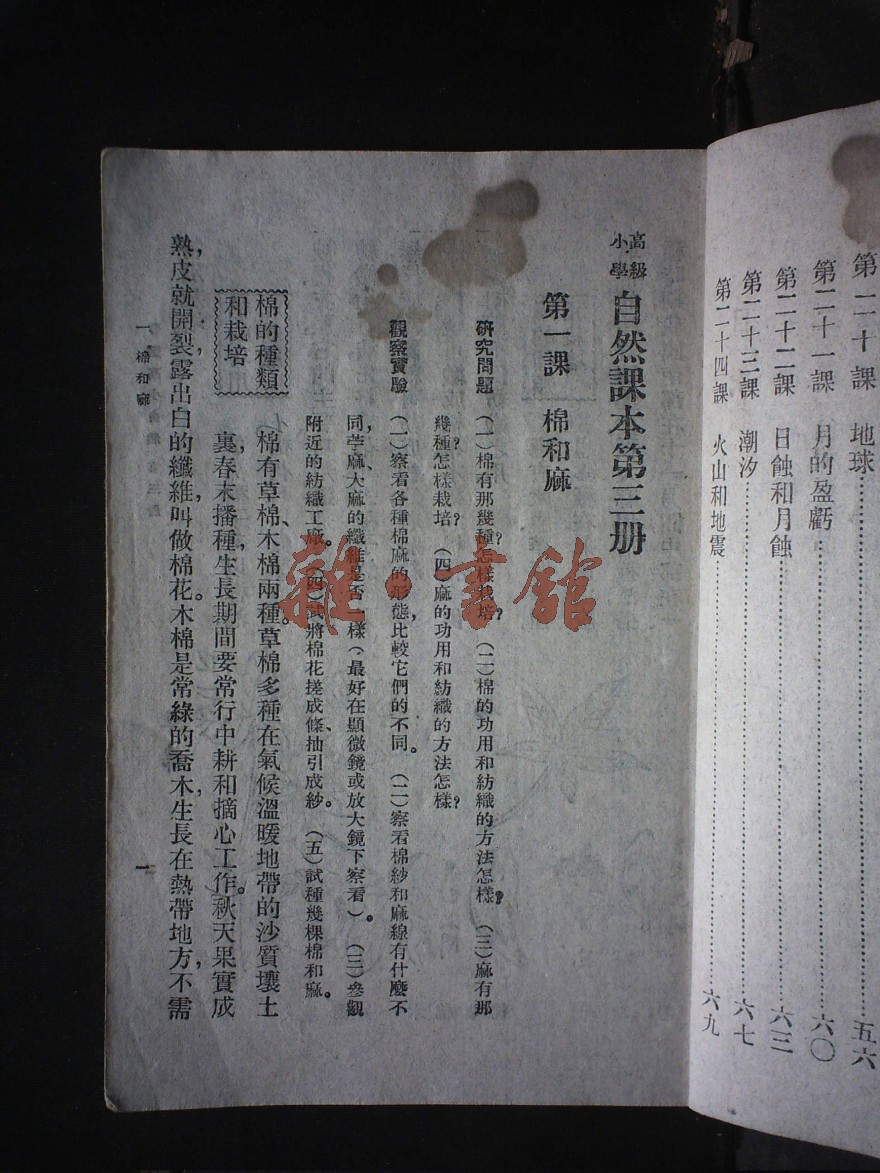 第二十課 地球………五六
第二十一課 月的盈虧………六〇
第二十二課 日蝕和月蝕………六三
第二十三課 潮汐………六七
第二十四課 火山和地震………六九
高級小學 自然課本第三册
第一課 棉和麻
研究問題 (一)棉有那幾種?怎樣栽培?(二)棉的功用和紡織的方法怎樣?(三)麻有那
幾種?怎樣栽培?(四)麻的功用和紡織的方法怎樣?
觀察實驗 (一)察看各種棉麻的形態,比較它們的不同。(二)察看棉紗和麻線有什麼不
同,苧麻、大麻的纖維是否一樣(最好在顯微鏡或放大鏡下察看)。(三)參觀
附近的紡織工廠。(四)試將棉花搓成條、抽引成紗。(五)試種幾棵棉和麻。
棉的種類
和栽培
棉有草棉、木棉兩種。草棉多種在氣候溫暖地帶的沙質壤土
裏,春末播種,生長期間要常行中耕和摘心工作。秋天果實成
熟,皮就開裂,露出白的纖維,叫做棉花。木棉是常綠的喬木,生長在熱帶地方,不需
一、棉和麻
一
雜·書館